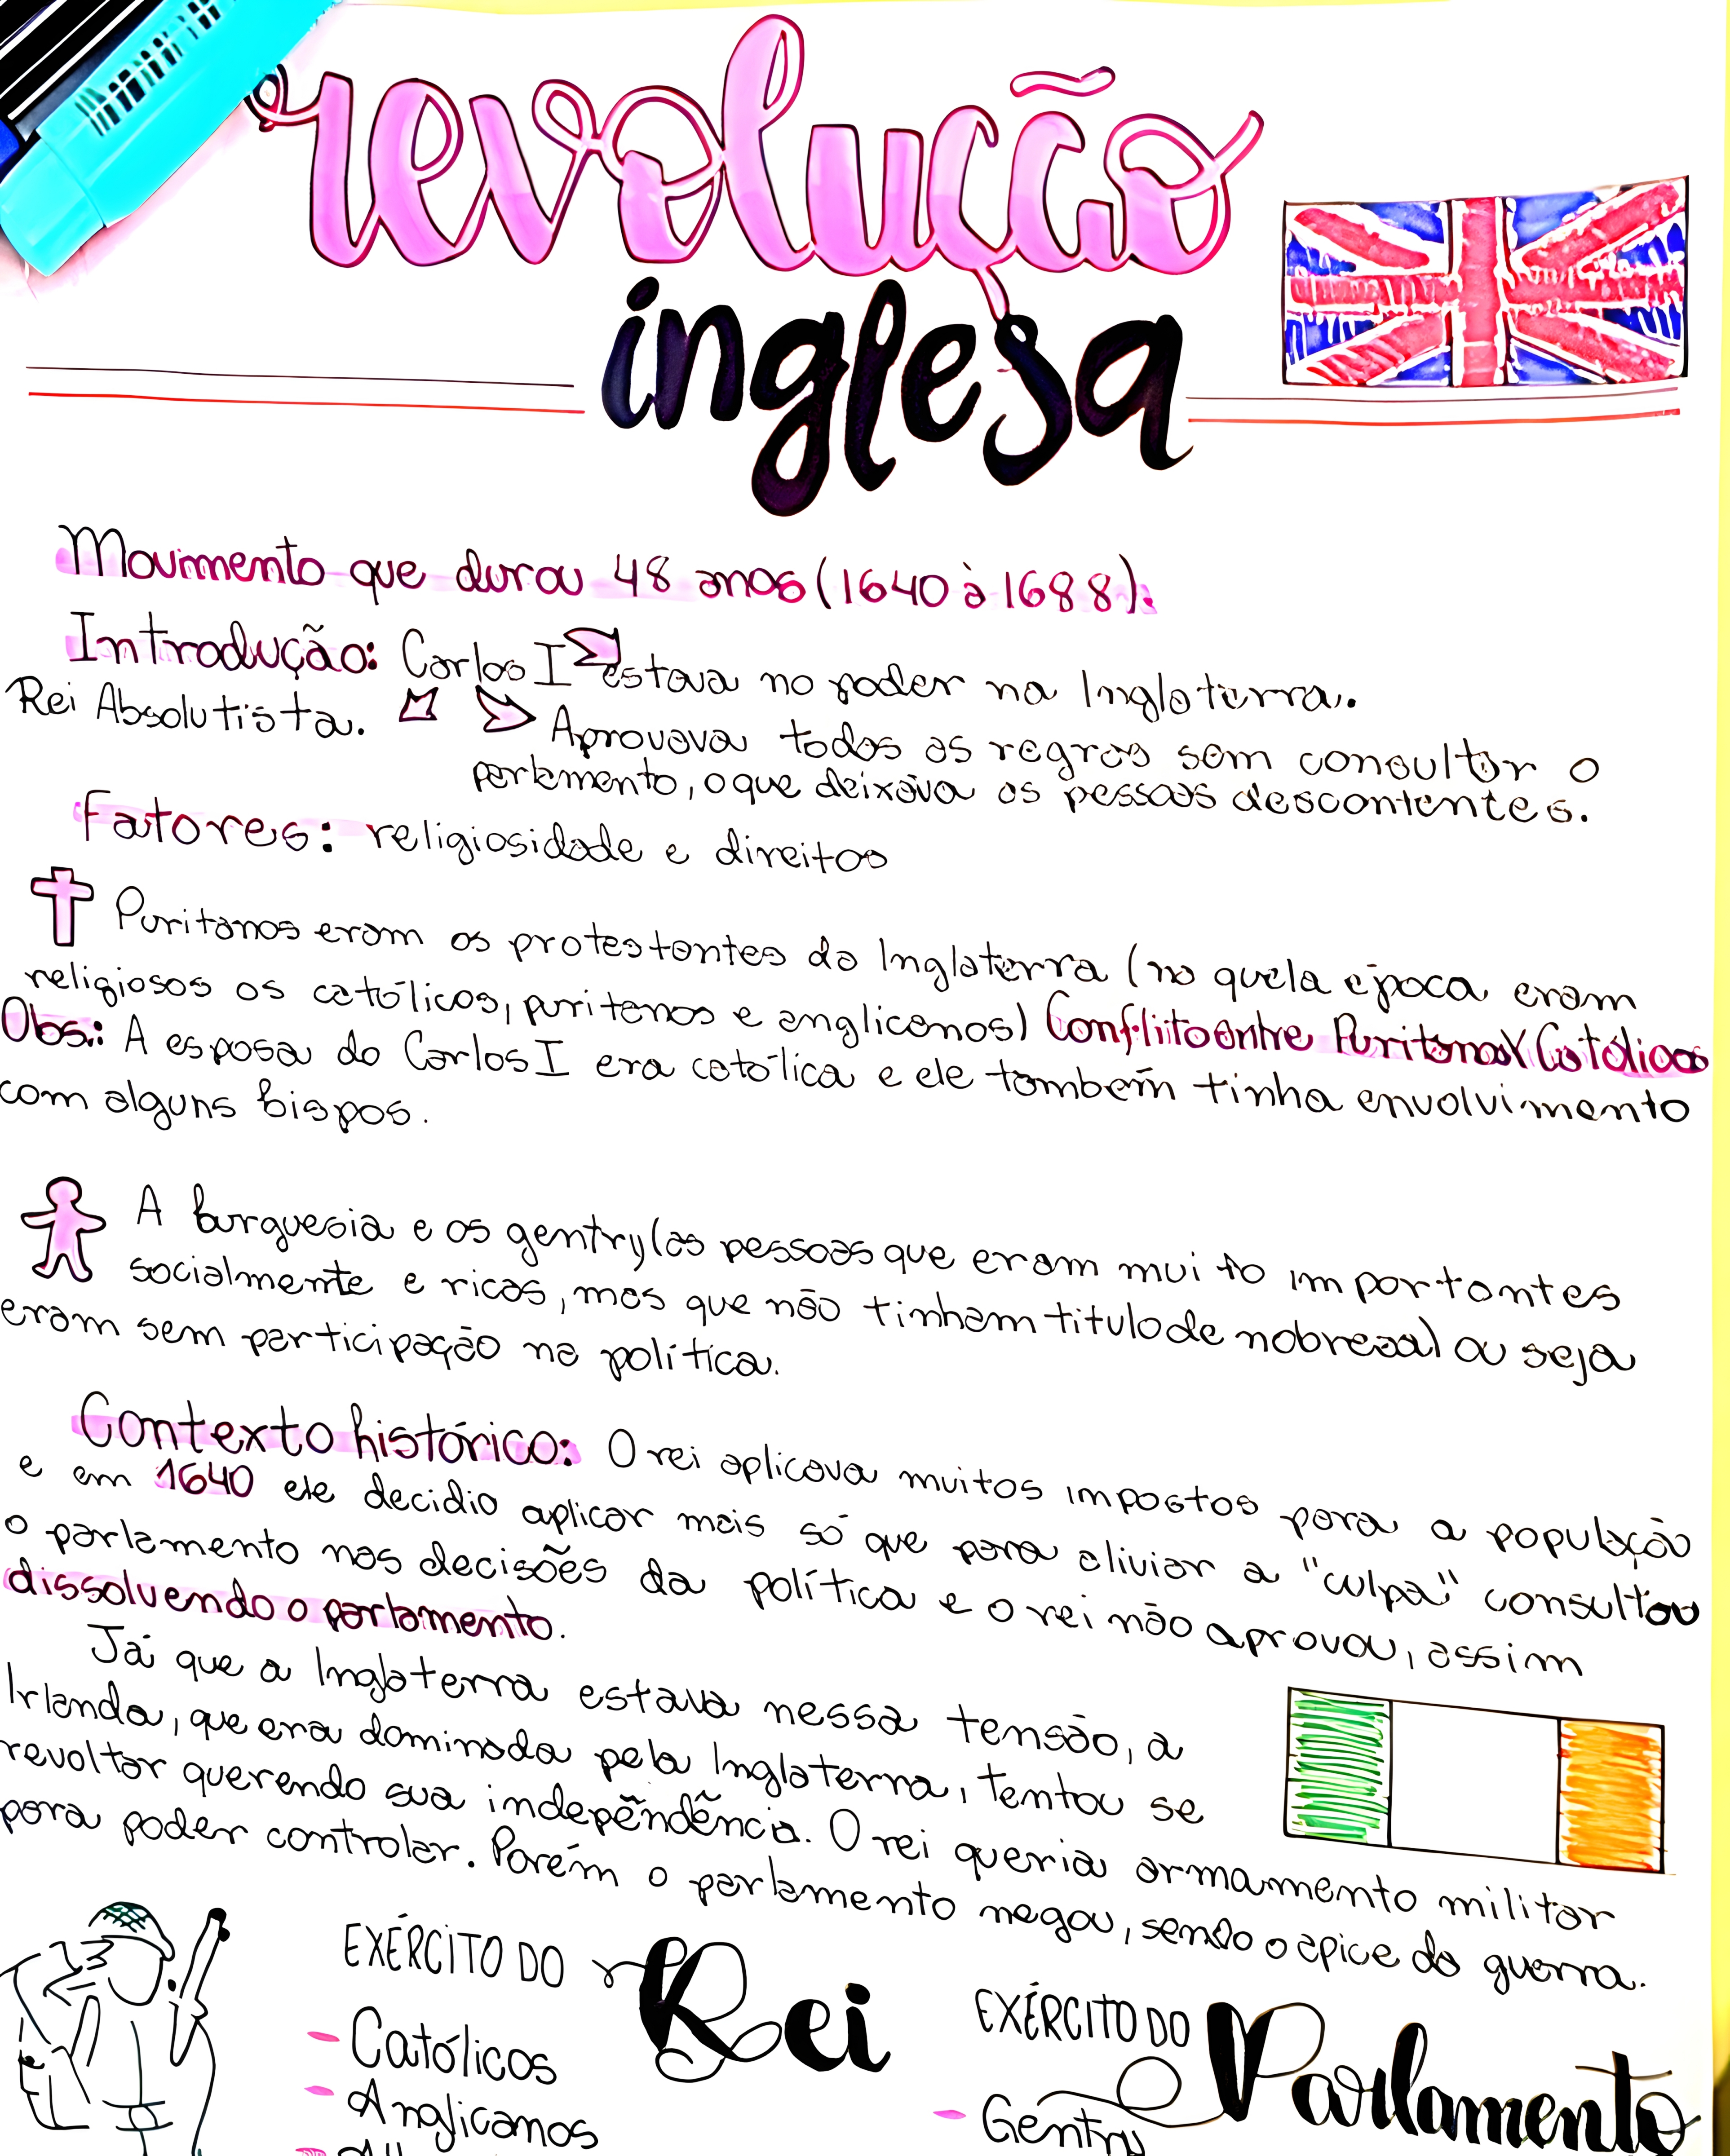 revolução
inglesa
Movimento que durou 48 anos (1640 à 1688).
Introdução: Carlos I estava no poder na Inglaterra.
Rei Absolutista.
Aprovava todas as regras sem consultar o
parlamento, o que deixava as pessoas descontentes.
Fatores: religiosidade e direitos
Puritanos eram os protestantes da Inglaterra (na quela época eram
religiosos os católicos, puritanos e anglicanos) Conflito entre Puritanos X Católicos
Obs.: A esposa do Carlos I era católica e ele também tinha envolvimento
com alguns bispos.
A burguesia e os gentry (as pessoas que eram muito importantes
socialmente e ricas, mas que não tinham titulo de nobreza) ou seja
eram sem participação na política.
Contexto histórico: O rei aplicava muitos impostos para a população
e em 1640 ele decidio aplicar mais só que para aliviar a "culpa" consultou
o parlamento nas decisões da política e o rei não aprovou, assim
dissolvendo o parlamento.
Já que a Inglaterra estava nessa tensão, a
Irlanda, que era dominada pela Inglaterra, tentou se
revoltar querendo sua independência. O rei queria armamento militar
para poder controlar. Porém o parlamento negou, sendo o ápice da guerra.
EXÉRCITO DO Rei
- Católicos
- Anglicanos
EXÉRCITO DO Parlamento
- Gentry